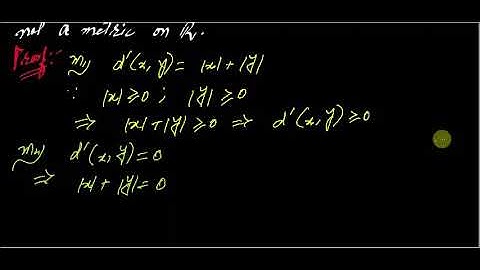 not a metric on R.
Proof:- m₁) d'(x, y) = |x| + |y|
∵ |x| ≥ 0 ; |y| ≥ 0
⇒ |x| + |y| ≥ 0 ⇒ d'(x, y) ≥ 0
m₂) d'(x, y) = 0
⇒ |x| + |y| = 0